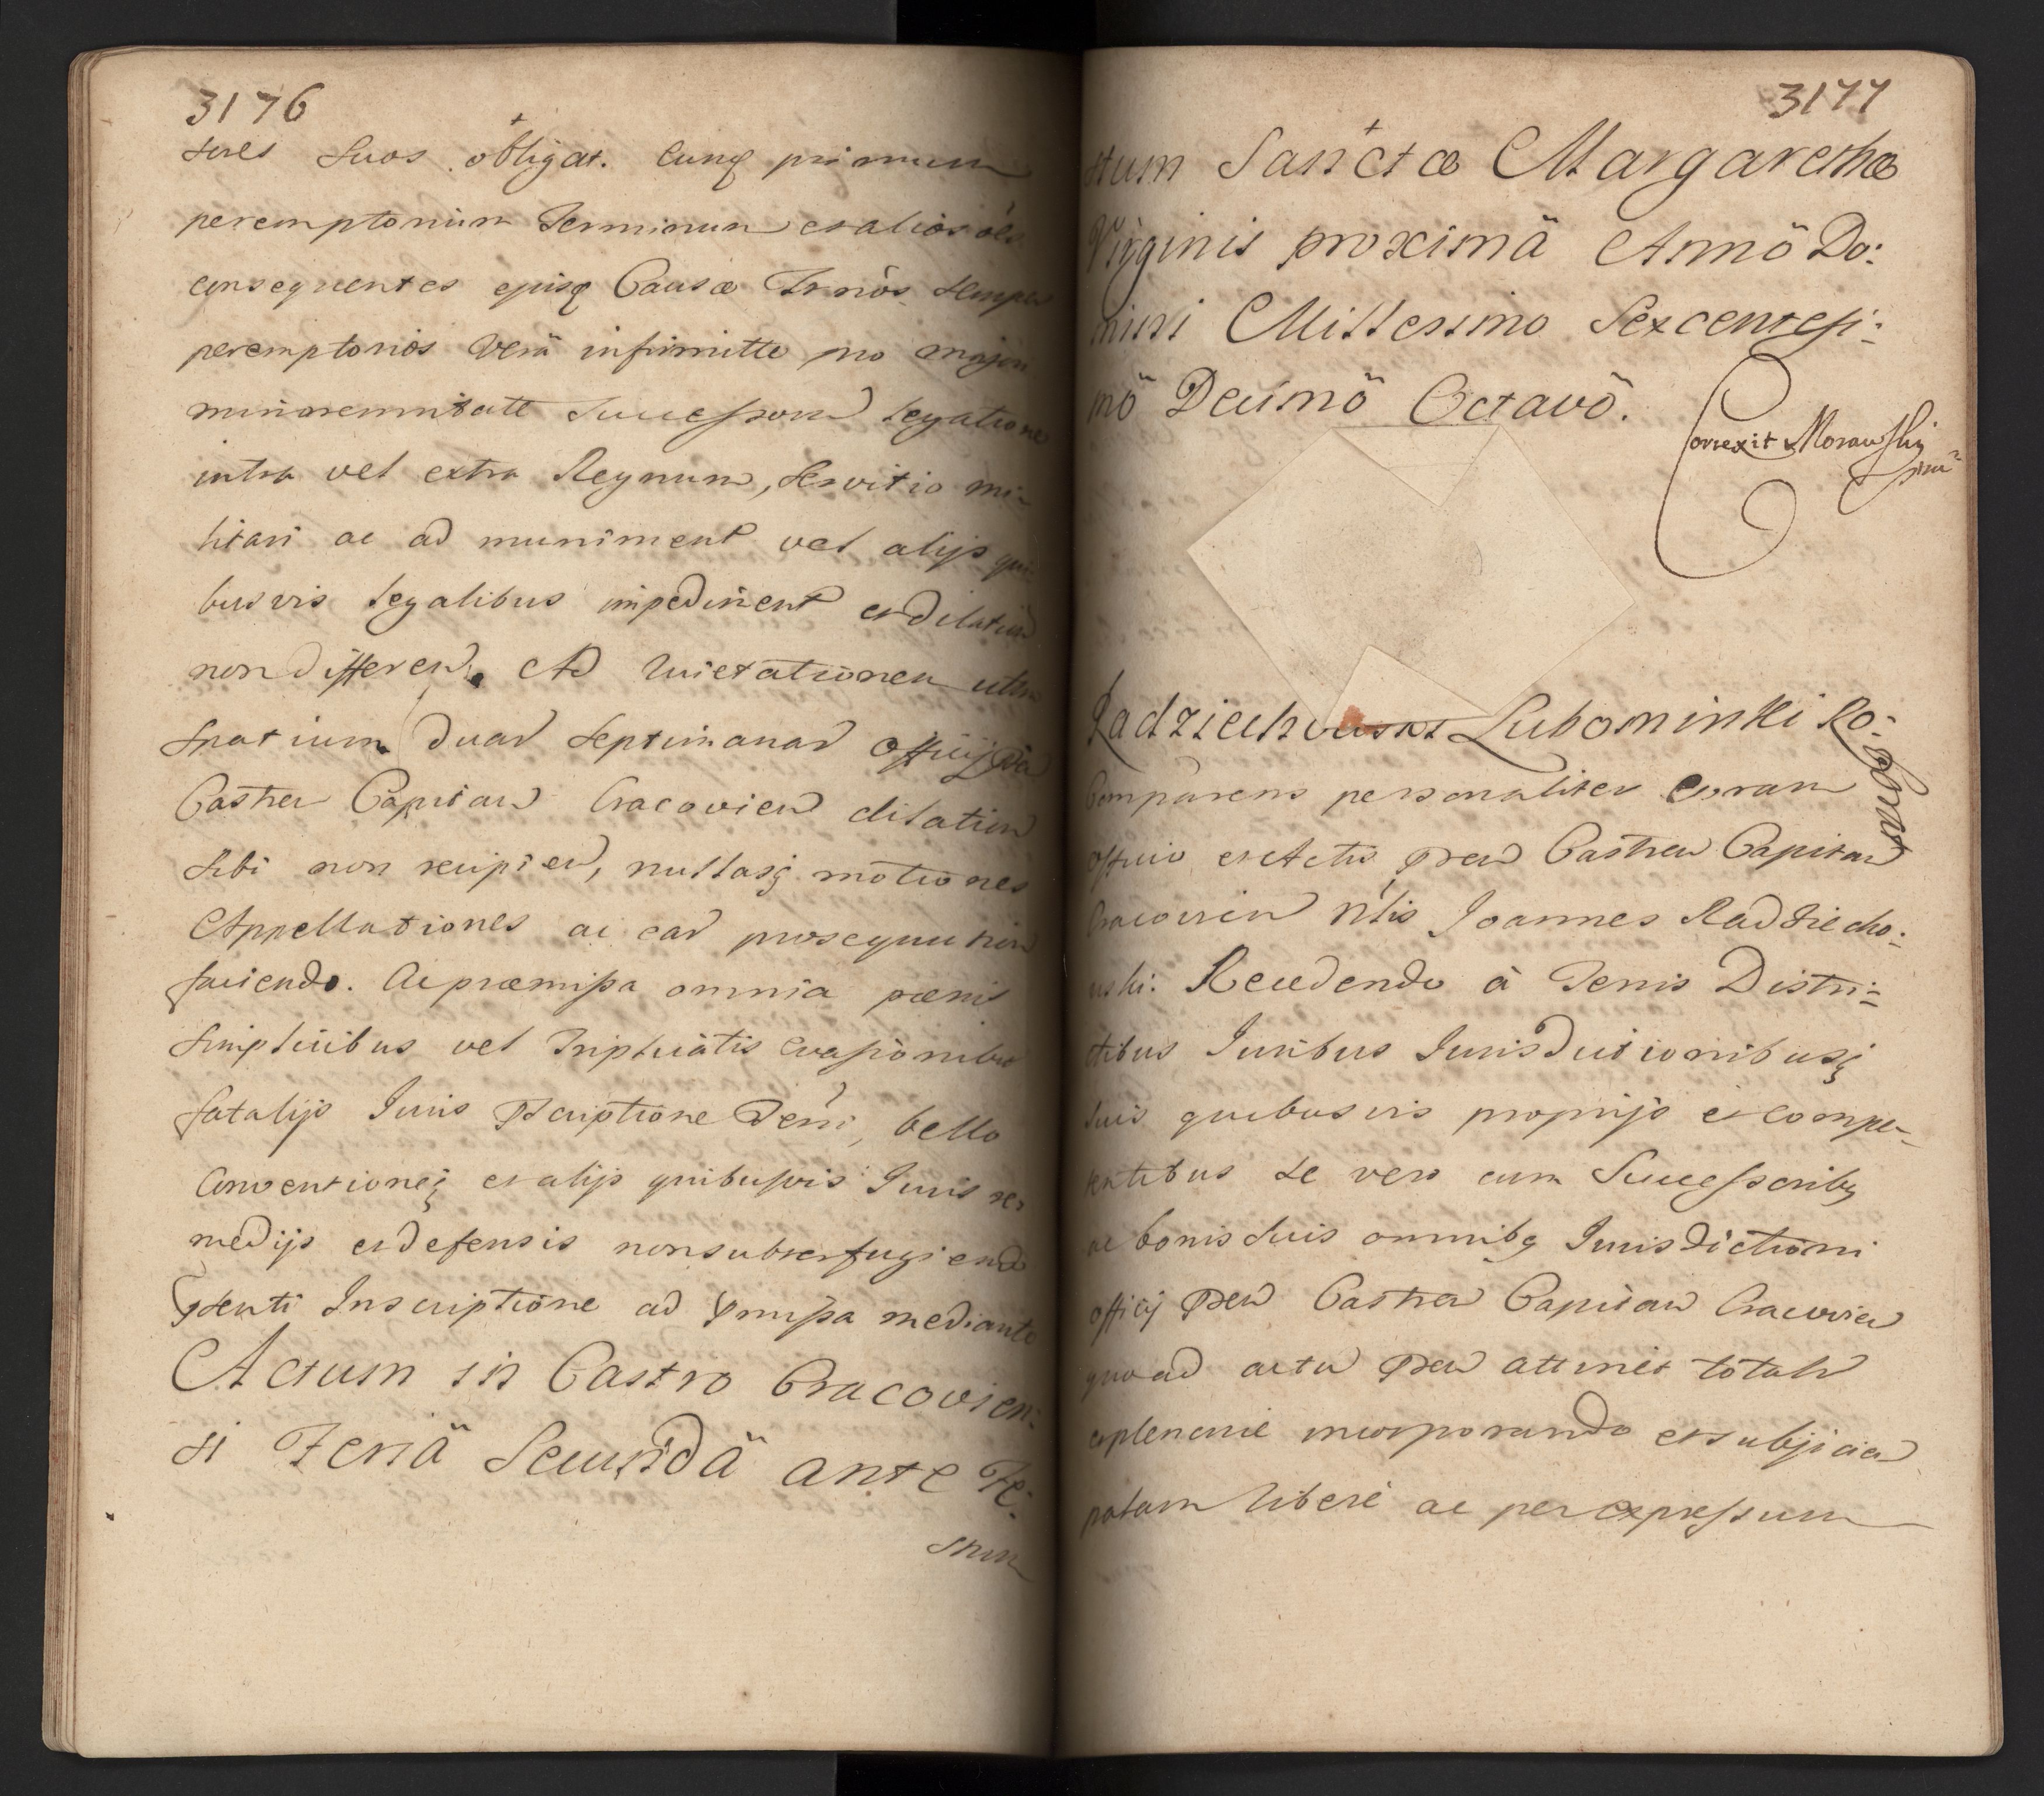 3176
sores suos obligat. Cunq primum
peremptorium Terminum et alios oēs
consequentes ejusq Causæ Trnōs semper
peremptorios Verā infirmitte pro majori
minoremnitate Successorū legatione
intra vel extra Regnum, Servitio mi-
litari ac ad muniment vel alijs qui
busvis legalibus impediment et dilation
non differen. Ad quietationem ultra
Spatium duar Septimanar Officij Pn
Castren Capitan Cracovien dilation
sibi non recipien, nullasq motiones
Appellationes ac ear prosequution
faciendo. Ac præmissa omnia pœnis
simplicibus vel Triplicātis evasionibus
fatalijs Juris Pscriptione Terri, bello
Conventioneq et alijs quibusvis Juris re-
medijs et defensis non subterfugiend
Psenti Inscriptione ad Pmissa mediante
Actum in Castro Cracovien-
si Feriā Secundā ante Fe-
stum
3177
stum Sanctæ Margarethæ
Virginis proximā Annō Do:
mini Millessimo Sexcentesi-
mō Decimō Octavō.
Correxit Morawski
mm
Radziechowski Lubominski Ro-
Comparens personaliter coram
Officio et Actis Psen Castren Capitan
Cracovien Nlis Joannes Radziecho:
wski. Recedendo à Terris Distri-
ctibus Juribus Jurisductionibusq
suis quibusvis proprijs et compe-
tentibus se vero cum Successoribq
ac bonis suis omnibq Jurisdictioni
officij Psen Castren Capitan Cracovien
quo ad actu Psen attinet totalr
ac plenarie incorporando et subjicien
palam libere ac per expressum